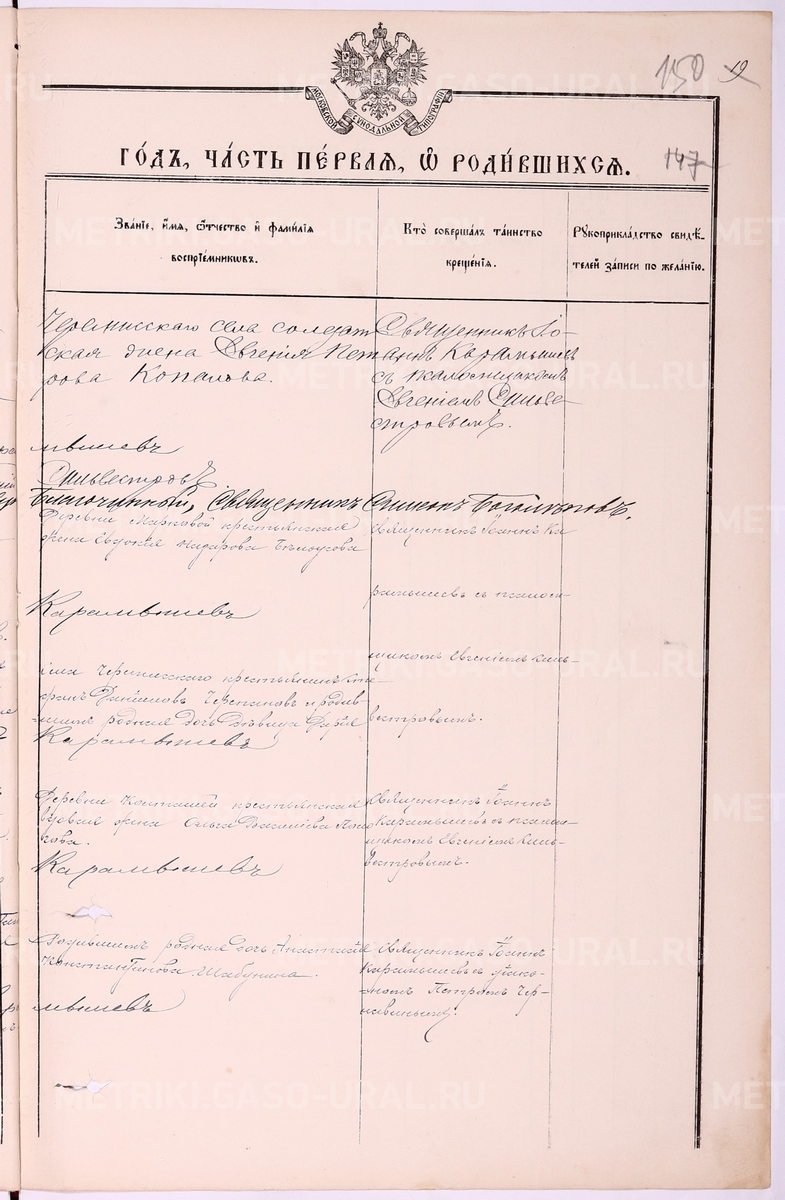 МОСКОВСКОЙ СѴНОДАЛЬНОЙ ТИПОГРАФІИ
150 19
147
ГО́ДЪ, ЧА́СТЬ ПЕ́РВАЯ, Ѡ҆ РОДИ́ВШИХСѦ.
Зва́нїе, и҆́мѧ, ѻ҆́тчество и҆ фами́лїѧ
воспрїе́мникѡвъ.
Кто̀ соверша́лъ та́инство
креще́нїѧ.
Рꙋкоприкла́дство свидѣ́-
телей за́писи по жела́нїю.
Черемисскаго села солдат
ская жена Евгенія Пет
рова Копалова.
Священникъ Іо-
аннъ Карамышев
съ псаломщикомъ
Евгеніемъ Сильве-
стровымъ.
мышевъ
Сильвестровъ
Благочинный, Священникъ Симеонъ
Деревни крестьянская
жена Евдокія Назарова Бѣлоусова
Священникъ Іоаннъ Ка
рамышевъ съ псалом-
щикомъ Евгеніемъ Силь-
вестровымъ.
Карамышевъ
села Черемисскаго крестьянинъ
Даніиловъ Черепановъ и родив-
шимъ родная дочь дѣвица
Карамышевъ
Деревни крестьянская
вдовая жена Ольга Василіева
Карамышевъ
Священникъ Іоаннъ
Карамышевъ съ псалом-
щикомъ Евгеніемъ Силь-
вестровымъ.
родная дочь Анастасія
Константинова Шабунина.
Священникъ Іоаннъ
Карамышевъ съ діако-
номъ Петромъ Чер-
навинымъ.
мышевъ
METRIKI.GASO-URAL.RU